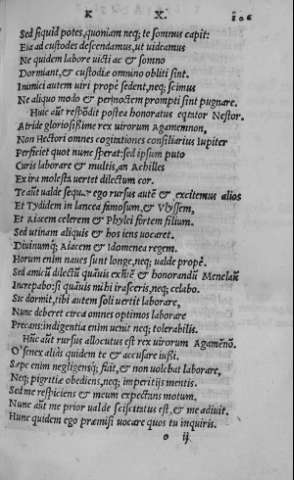 K X. 106
Sed siquid potes, quoniam neq; te somnus capit:
Eia ad custodes descendamus, ut uideamus
Ne quidem labore uicti ac & somno
Dormiant, & custodiæ omnino obliti sint.
Inimici autem uiri prope sedent, neq; scimus
Ne aliquo modo & per noctem prompti sint pugnare.
Hũc aũt respõdit postea honoratus eqtator Nestor.
Atride gloriosissime rex uirorum Agamemnon,
Non Hectori omnes cogitationes consiliarius Iupiter
Perficiet quot nunc sperat: sed ipsum puto
Curis laborare & multis, an Achilles
Ex ira molesta uertet dilectum cor.
Te aũt ualde sequar ego rursus autẽ & excitemus alios
Et Tydidem in lancea famosum, & Vlyssem,
Et Aiacem celerem & Phylei fortem filium.
Sed utinam aliquis & hos iens uocaret.
Diuinumq; Aiacem & Idomenea regem.
Horum enim naues sunt longe, neq; ualde propẽ.
Sed amicũ dilectũ quãuis exñtẽ & honorandũ Menelaũ
Increpabo: si quãuis mihi irasceris, neq; celabo.
Sic dormit, tibi autem soli uertit laborare,
Nunc deberet circa omnes optimos laborare
Precans: indigentia enim uenit neq; tolerabilis.
Hũc aũt rursus allocutus est rex uirorum Agamẽnõ.
O senex alias quidem te & accusare iussi.
Sæpe enim negligensq; fiat, & non uolebat laborare,
Neq; pigritiæ obediens, neq; imperitijs mentis.
Sed me respiciens & meum expectans motum.
Nunc aũt me prior ualde sciscitatus est, & me adiuit.
Hunc quidem ego præmisi uocare quos tu inquiris.
o ij